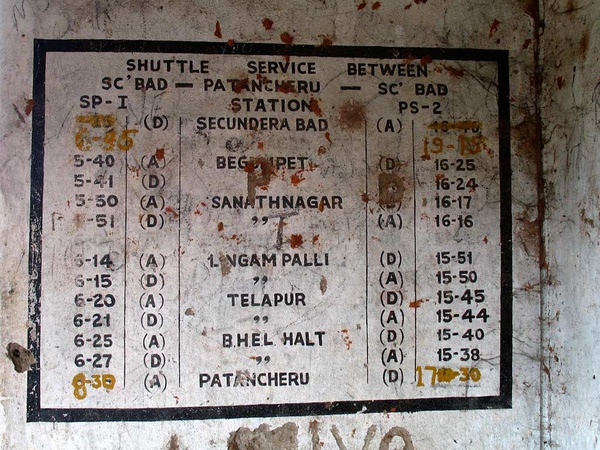 SHUTTLE SERVICE BETWEEN
SC'BAD — PATANCHERU — SC' BAD
SP-I STATION PS-2
(D) SECUNDERA BAD (A)
5-40 (A) BEGUMPET (D) 16-25
5-41 (D) 16-24
5-50 (A) SANATHNAGAR (D) 16-17
-51 (D) ,, (A) 16-16
6-14 (A) LINGAM PALLI (D) 15-51
6-15 (D) ,, (A) 15-50
6-20 (A) TELAPUR (D) 15-45
6-21 (D) ,, (A) 15-44
6-25 (A) B.HEL HALT (D) 15-40
6-27 (D) ,, (A) 15-38
8-30 (A) PATANCHERU (D) 17-30